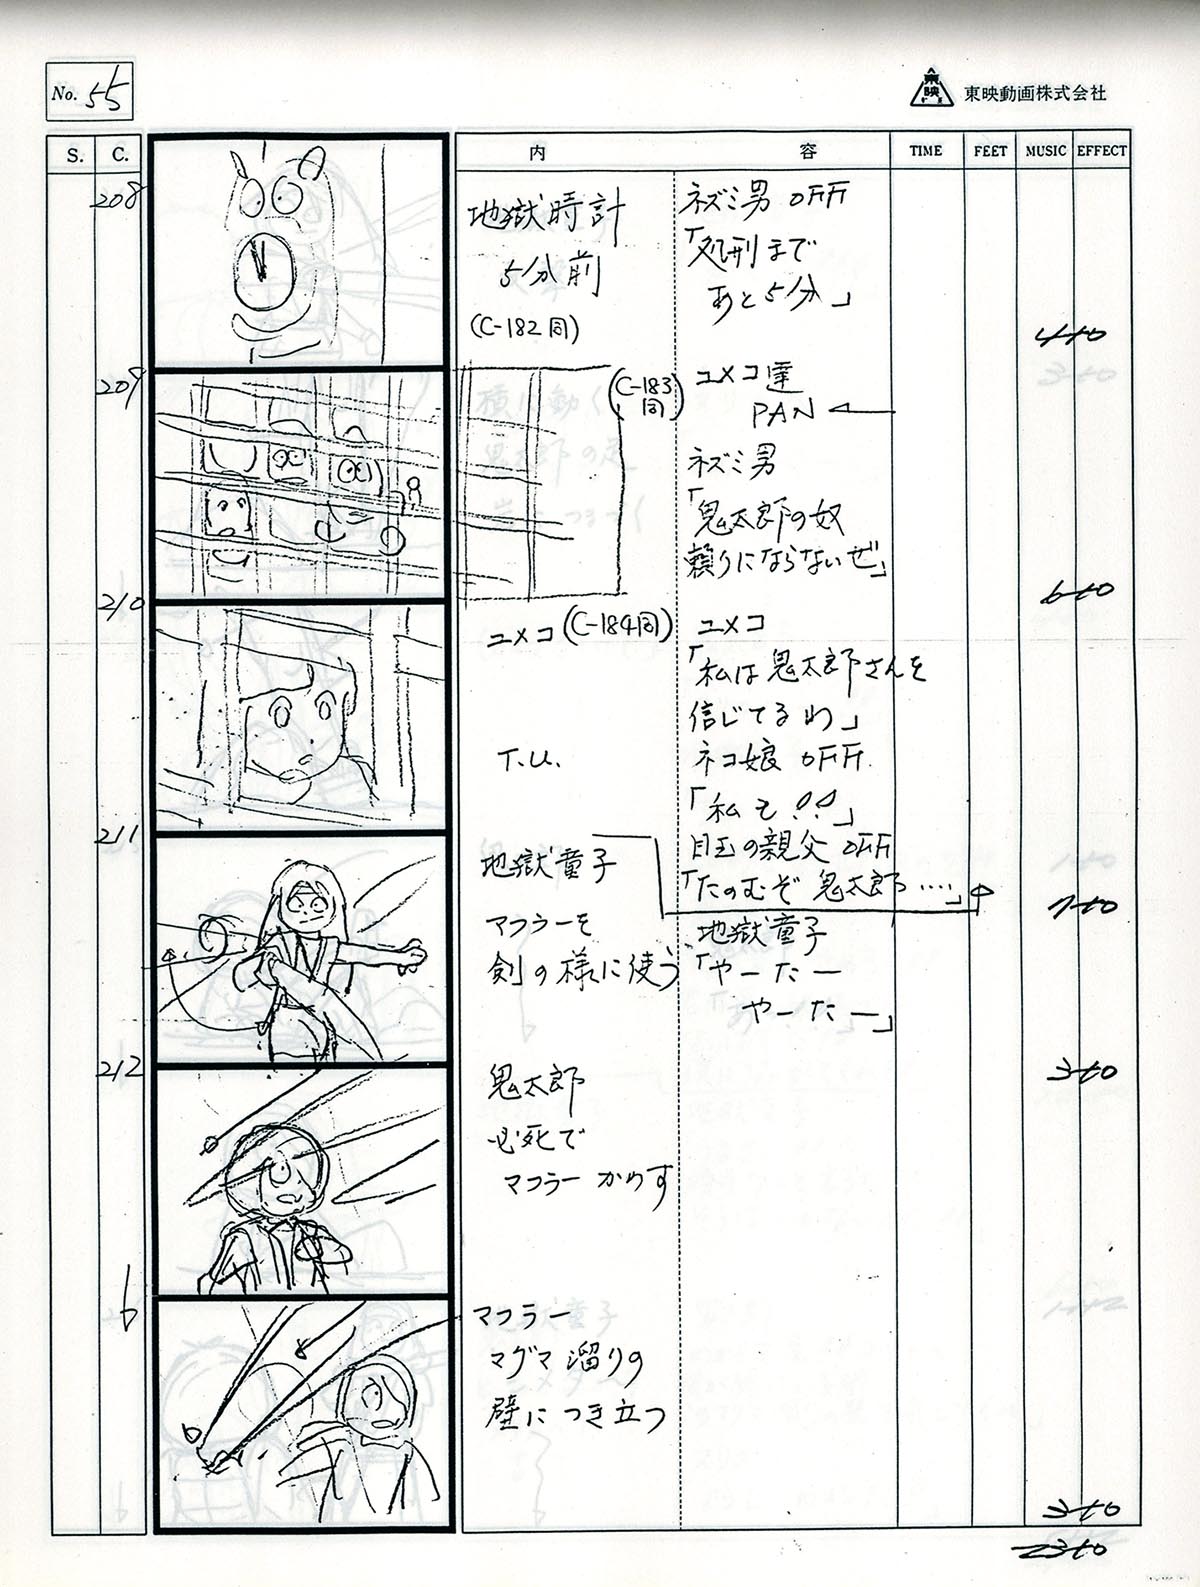 No. 55
東映動画株式会社
S. C. 内 容 TIME FEET MUSIC EFFECT
208
地獄時計
5分前
(C-182同)
ネズミ男 OFF
「処刑まで
あと5分」
4+0
209
(C-183
同)
ユメコ達
PAN
ネズミ男
「鬼太郎の奴
頼りにならないぜ」
6+0
210
ユメコ (C-184同)
T.U.
ユメコ
「私は鬼太郎さんを
信じてるわ」
ネコ娘 OFF
「私も!!」
目玉の親父 OFF
「たのむぞ 鬼太郎‥‥」
7+0
211
地獄童子
マフラーを
剣の様に使う
地獄童子
「やーたー
やーたー」
3+0
212
鬼太郎
必死で
マフラーかわす
マフラー
マグマ溜りの
壁につき立つ
3+0
23+0